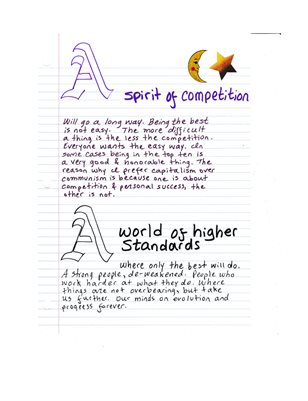 A
spirit of competition
Will go a long way. Being the best
is not easy. The more difficult
a thing is the less the competition.
Everyone wants the easy way. In
some cases being in the top ten is
a very good & honorable thing. The
reason why I prefer capitalism over
communism is because one is about
competition & personal success, the
other is not.
A
world of higher
Standards
Where only the best will do.
A strong people, de-weakened. People who
work harder at what they do. Where
things are not overbearing, but take
us further. Our minds on evolution and
progress forever.